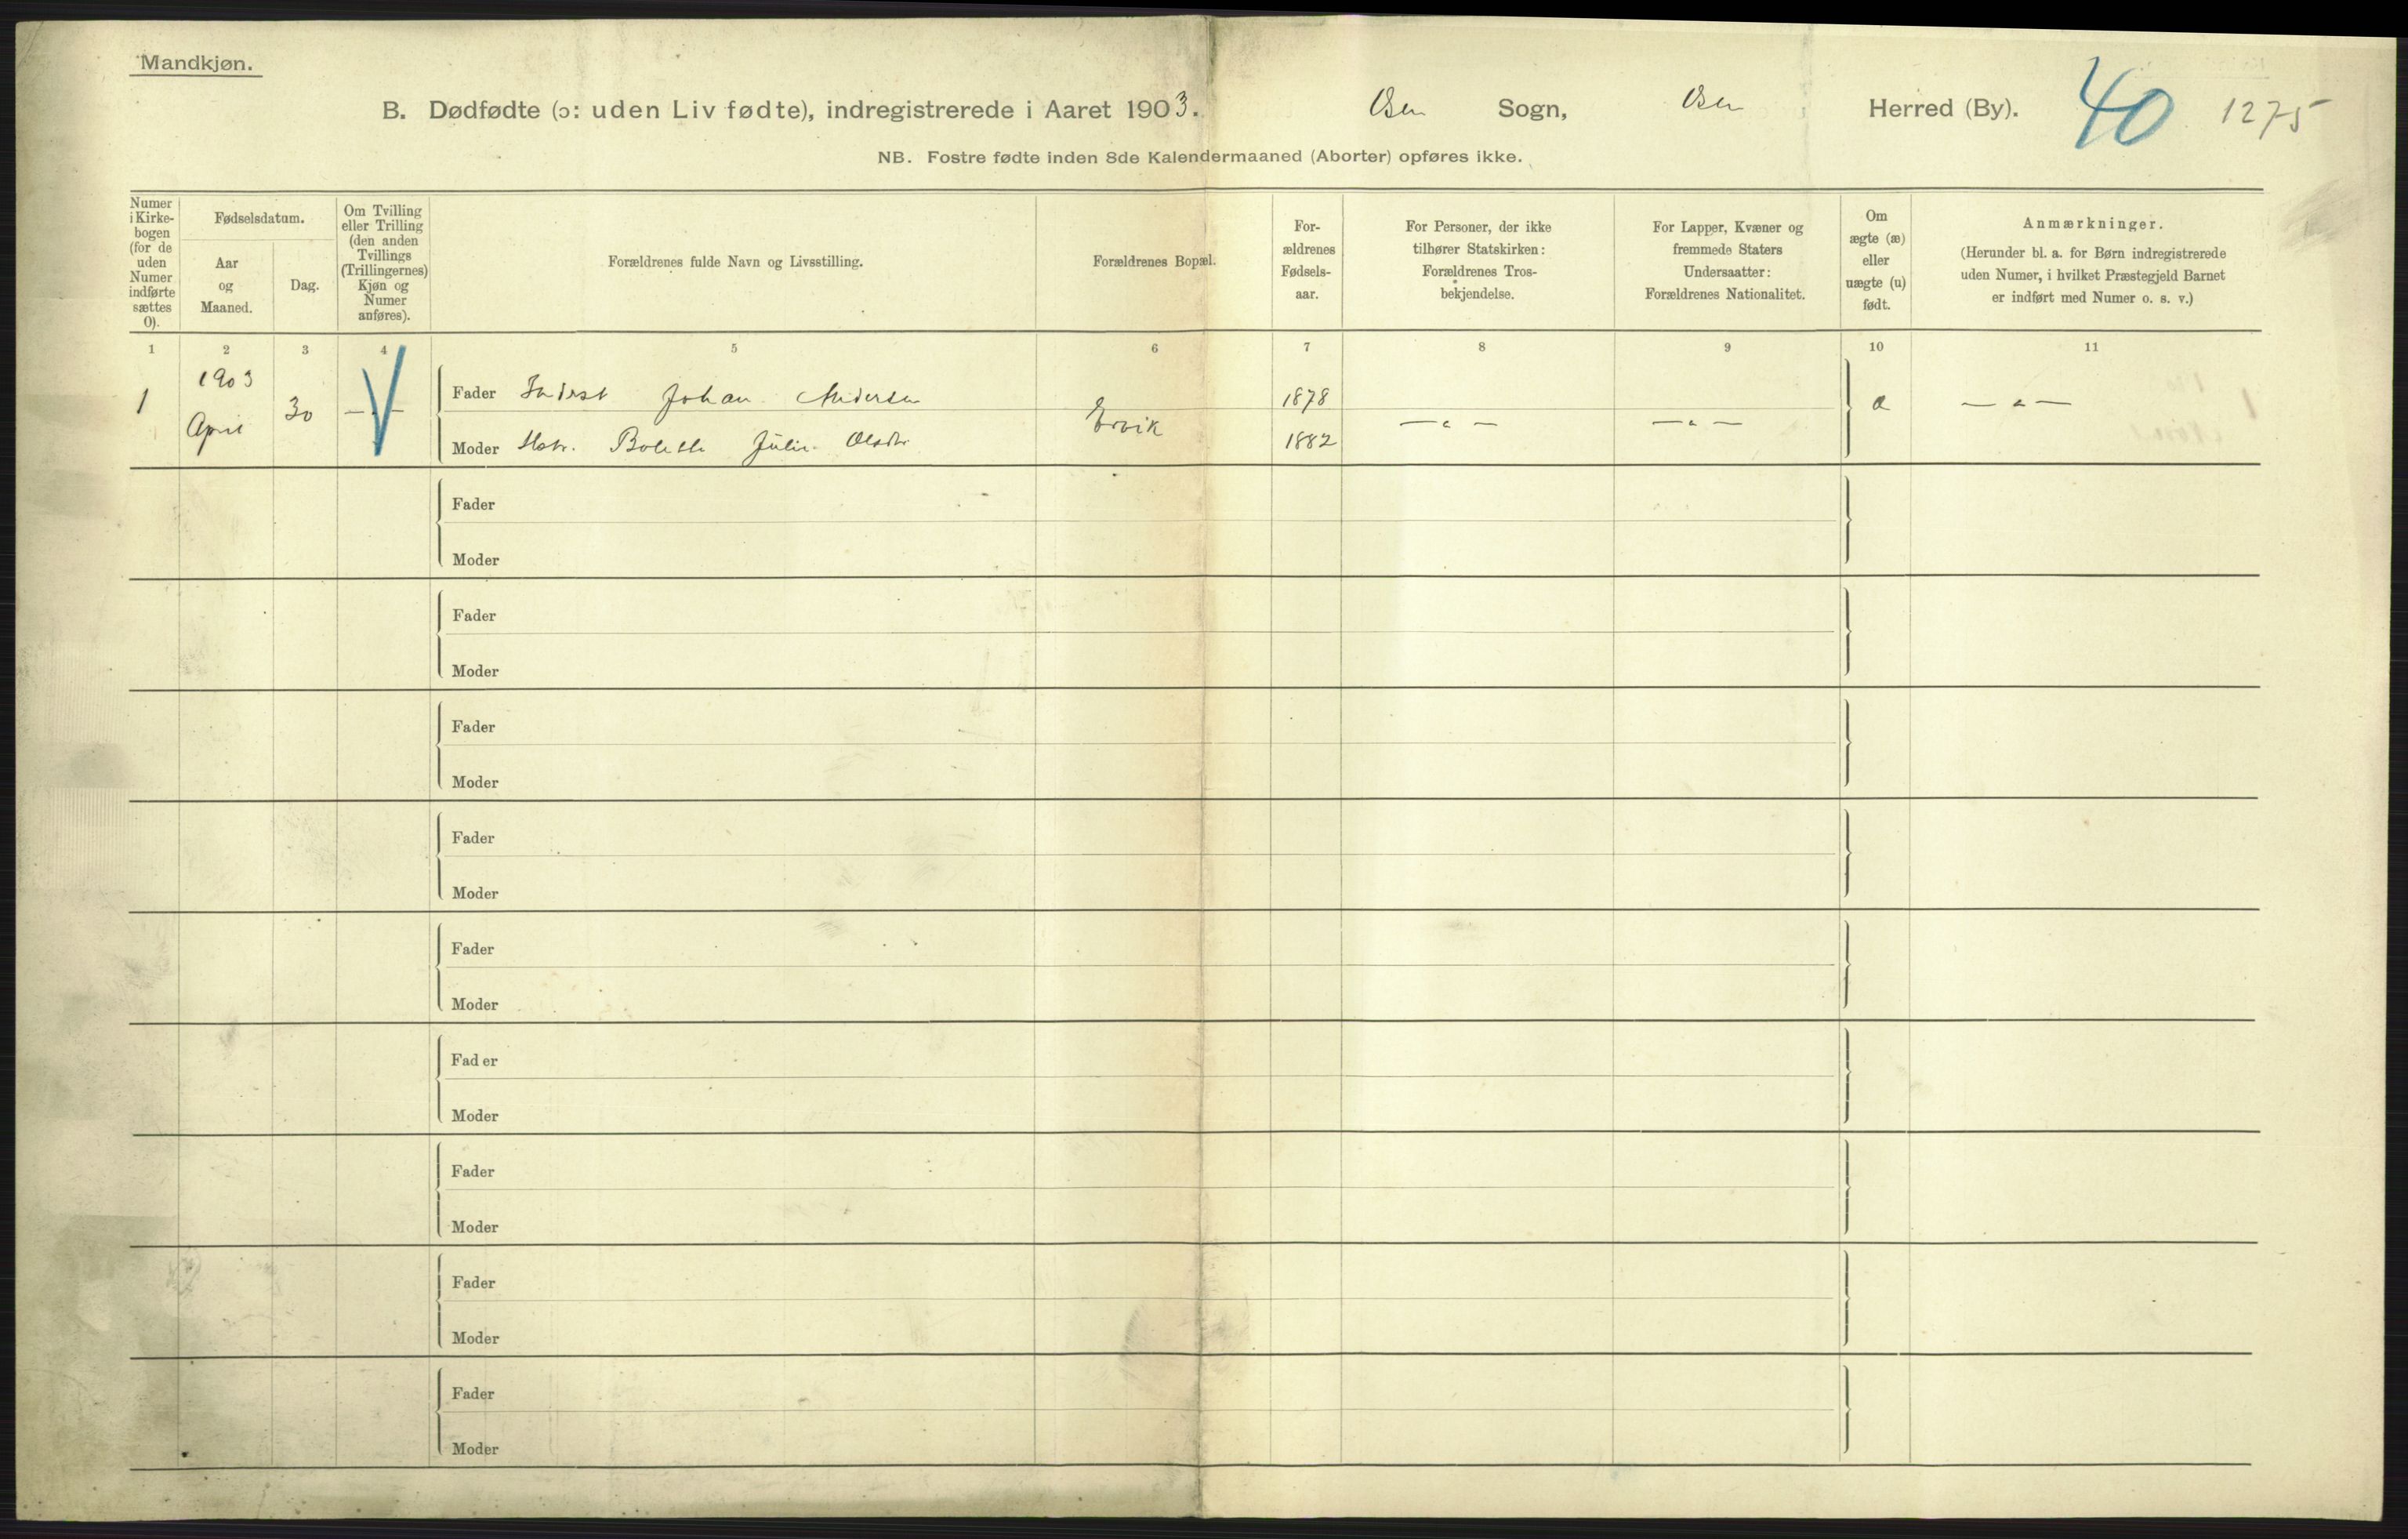 Mandkjøn.
B. Dødfødte (ɔ: uden Liv fødte), indregistrerede i Aaret 1903. Osen Sogn, Osen Herred (By). 40 1275
NB. Fostre fødte inden 8de Kalendermaaned (Aborter) opføres ikke.
Numer i Kirke-bogen (for de uden Numer indførte sættes 0).
Fødselsdatum.
Aar og Maaned.
Dag.
Om Tvilling eller Trilling (den anden Tvillings (Trillingernes) Kjøn og Numer anføres).
Forældrenes fulde Navn og Livsstilling.
Forældrenes Bopæl.
For-ældrenes Fødsels-aar.
For Personer, der ikke tilhører Statskirken: Forældrenes Tros-bekjendelse.
For Lapper, Kvæner og fremmede Staters Undersaatter: Forældrenes Nationalitet.
Om ægte (æ) eller uægte (u) født.
Anmærkninger.
(Herunder bl. a. for Børn indregistrerede uden Numer, i hvilket Præstegjeld Barnet er indført med Numer o. s. v.)
1 2 3 4 5 6 7 8 9 10 11
1 1903 April 30 — V —
Fader Johan Andersen 1878
Moder Hstr. Julie Olsdtr 1882
Ervik — " — — " — æ — " —
Fader
Moder
Fader
Moder
Fader
Moder
Fader
Moder
Fader
Moder
Fader
Moder
Fader
Moder
Fader
Moder
Fader
Moder